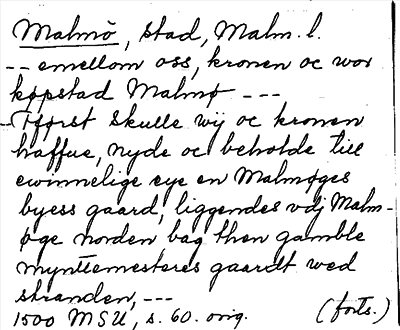 Malmö, stad, Malm. l.
-- emellom oss, kronen oc wor
køpstad Malmø ---
-- Fførst skulle wij oc kronen
haffue, nyde oc beholde till
ewinnelige eye en Malmøges
byess gaard, liggendes vdj Malm-
øge norden bag then gamble
mynttemesteres gaardt wed
stranden, ---
1500 MSU, s. 60. orig. (forts.)